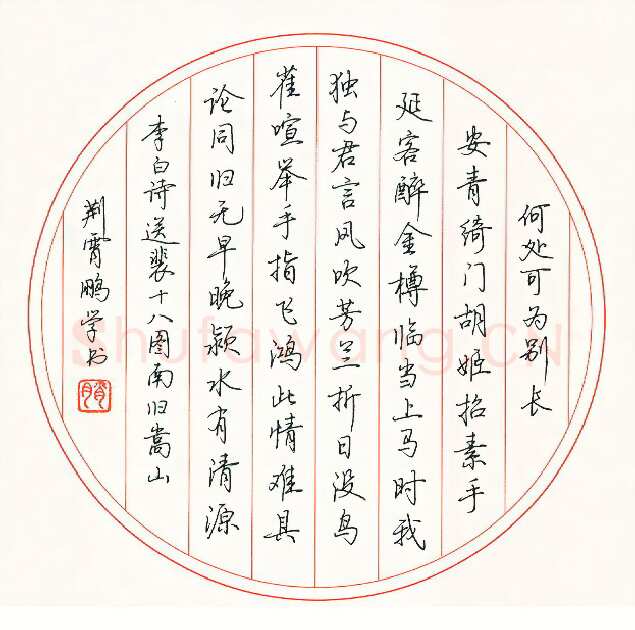 何处可为别长
安青绮门胡姬招素手
延客醉金樽临当上马时我
独与君言风吹芳兰折日没鸟
雀喧举手指飞鸿此情难具
论同归无早晚颍水有清源
李白诗送裴十八图南归嵩山
荆霄鹏学书
Shufawang.CN